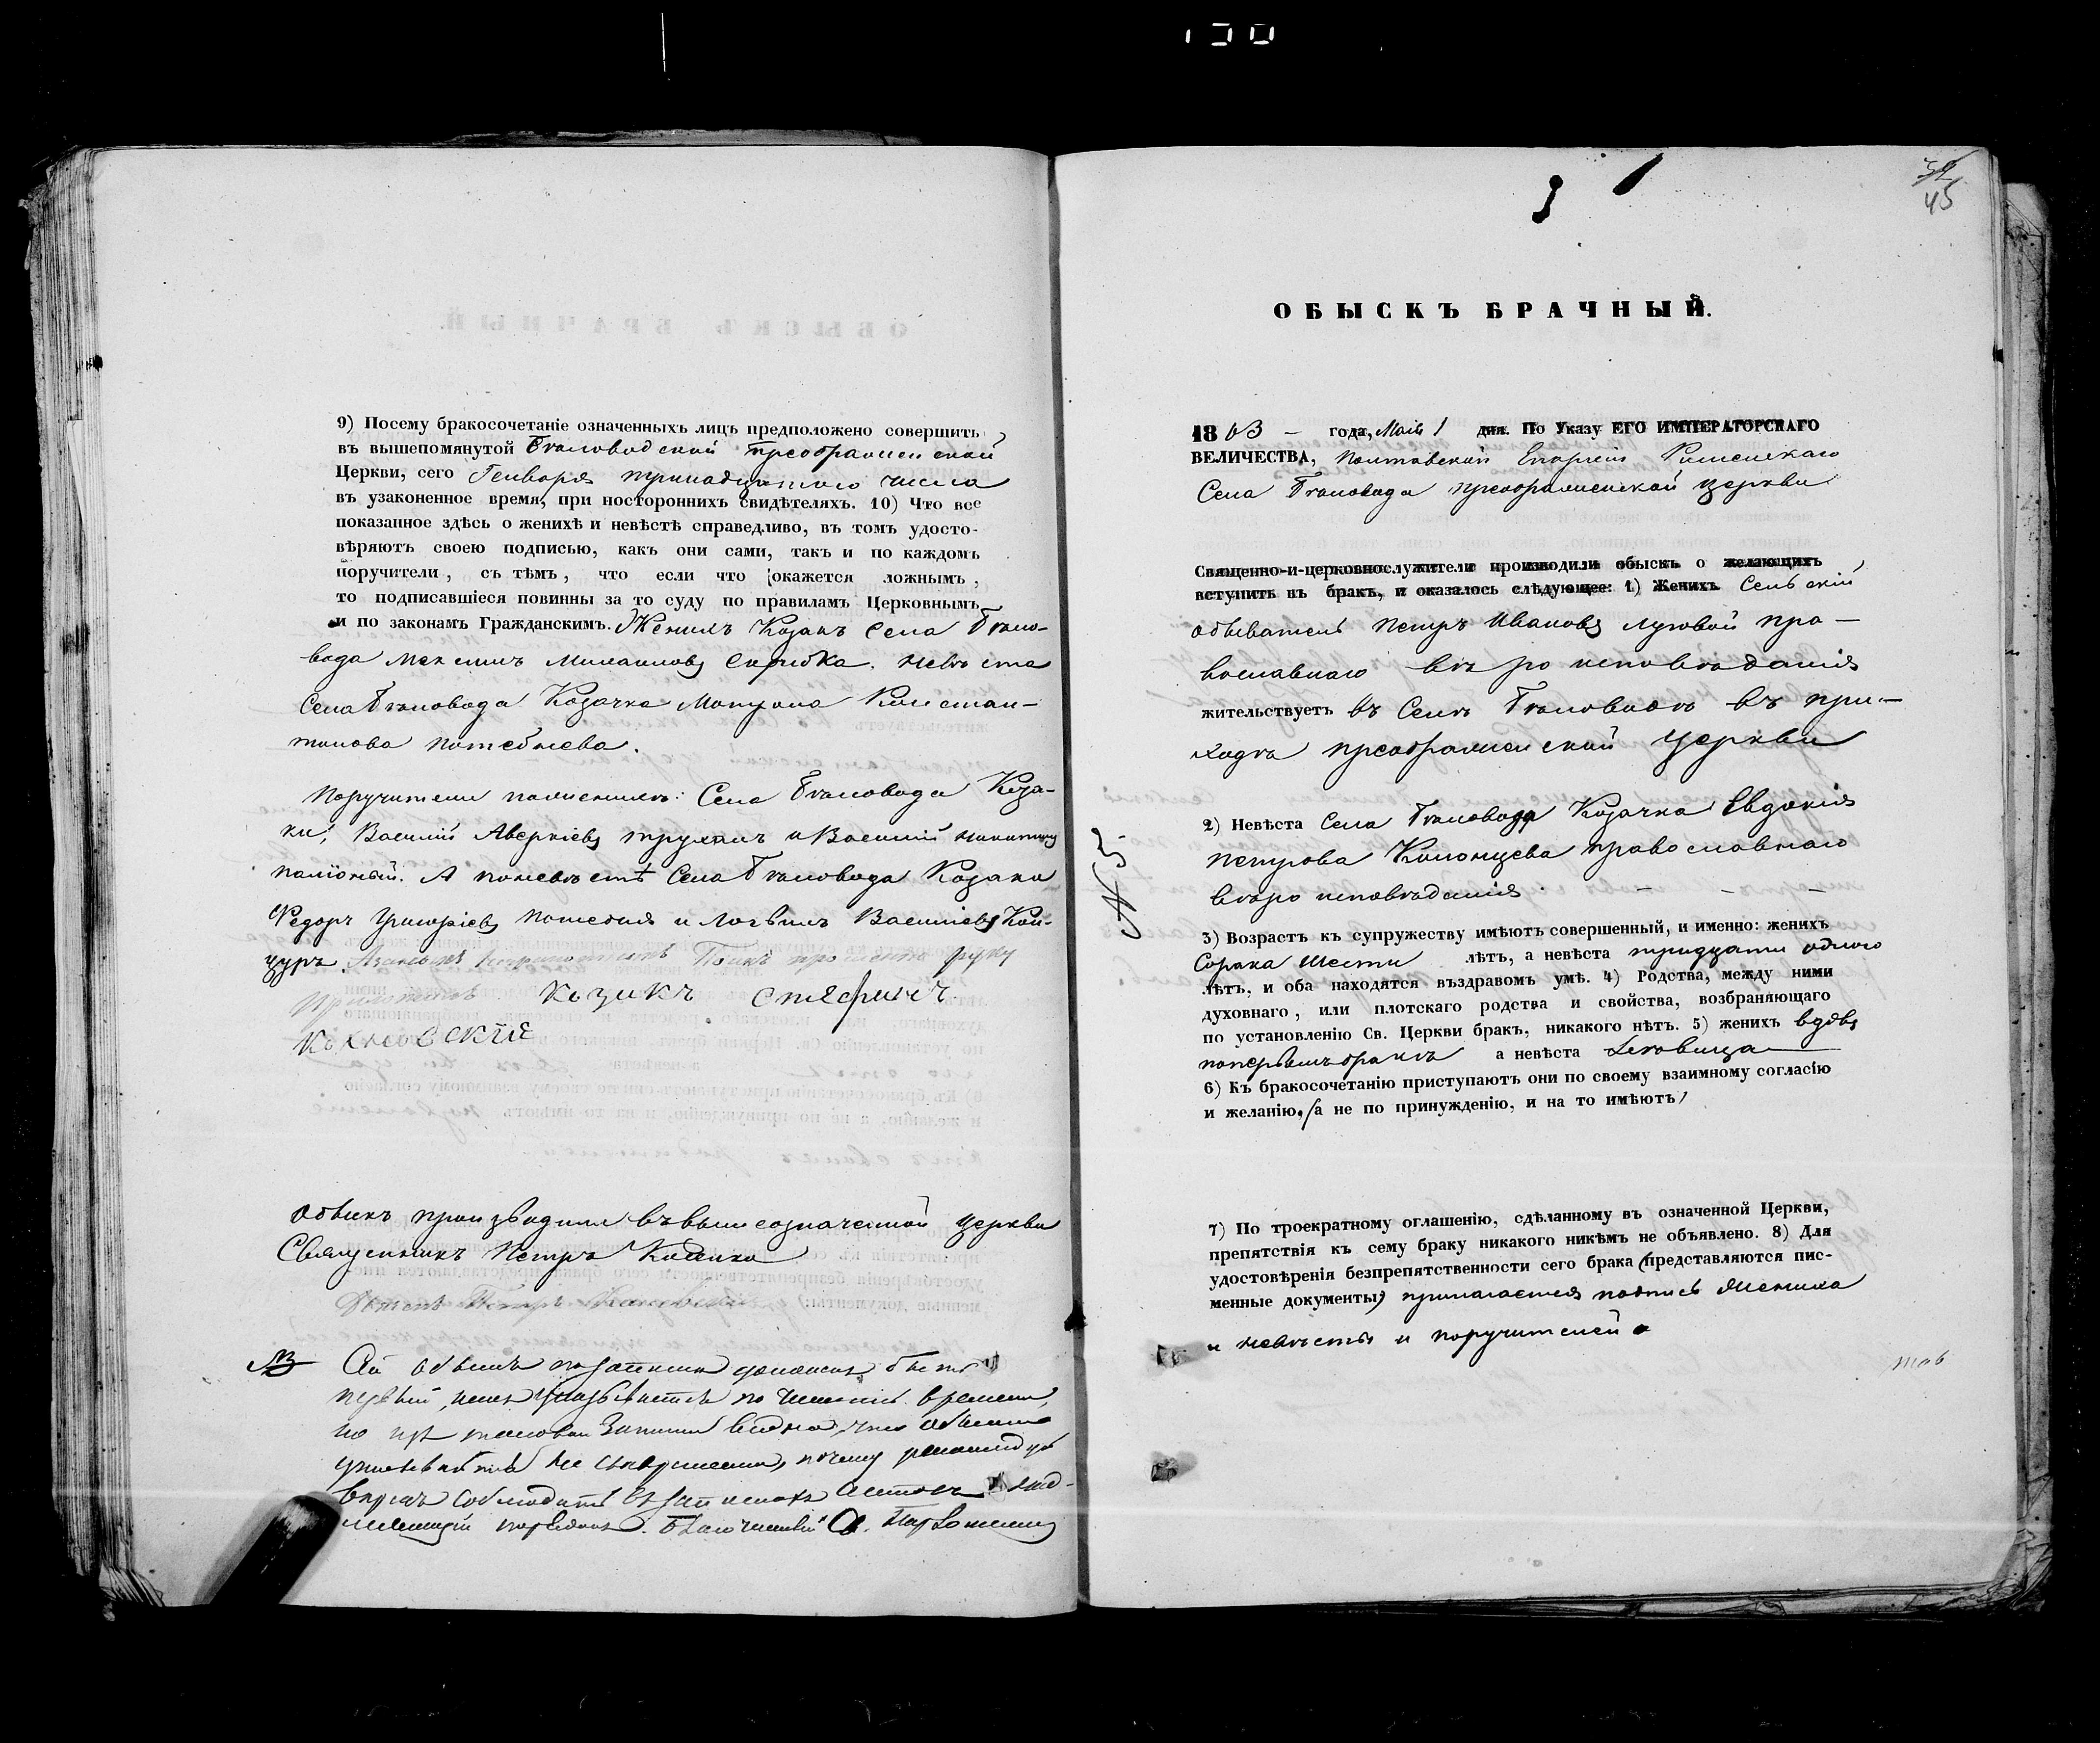 9) Посему бракосочетаніе означенныхъ лицъ предположено совершить
въ вышепомянутой Бѣловодской Преображенской
Церкви, сего Генваря тринадцатаго числа
въ узаконенное время, при ностороннихъ свидѣтеляхъ. 10) Что все
показанное здѣсь о женихѣ и невѣстѣ справедливо, въ томъ удосто-
вѣряютъ своею подписью, какъ они сами, такъ и по каждомъ
поручители, съ тѣмъ, что если что окажется ложнымъ,
то подписавшіеся повинны за то суду по правиламъ Церковнымъ
и по законамъ Гражданскимъ. Женихъ Козакъ Села Бѣло-
вода Михаиловъ Невѣста
Села Бѣловода Козачка Матрона Констан-
тинова Потебнева.
Поручители поженихѣ: Села Бѣловода Коза-
ки, Василій Аверкіевъ Труханъ и Василій Никитинъ
А поневѣстѣ Села Бѣловода Козаки
Федоръ Григоріевъ Потебня и Логвинъ Василіевъ Кон-
цуръ. руку
Козакъ Стефанъ
Обыскъ производили въ вышеозначенной церкви
Священникъ Петръ
Дьячокъ Петръ
NB Сей обыскъ по записки долженъ быть
первый, по теченію времени,
но изъ таковой записи видно, что обыски
не своевременно, почему рекомендую
впредь соблюдать въ записяхъ актовъ над-
лежащій порядокъ. Благочинный
39
45
ОБЫСКЪ БРАЧНЫЙ.
1863 – года, Маія 1 дня. По Указу ЕГО ИМПЕРАТОРСКАГО
ВЕЛИЧЕСТВА, Полтавской Епархіи Роменскаго
Села Бѣловода Преображенской церкви
Священно-и-церковнослужители производили обыскъ о желающихъ
вступить въ бракъ, и оказалось слѣдующее: 1) Женихъ Сельскій
обыватель Петръ Ивановъ Луговой пра-
вославнаго вѣроисповѣданія
жительствуетъ въ Селѣ Бѣловодѣ въ при-
ходѣ Преображенской церкви
№ 5.
2) Невѣста Села Бѣловода Козачка Евдокія
Петрова Колонцева православнаго
вѣроисповѣданія – – –
3) Возрастъ къ супружеству имѣютъ совершенный, и именно: женихъ
Сорока шести лѣтъ, а невѣста тридцати одного
лѣтъ, и оба находятся въздравомъ умѣ. 4) Родства, между ними
духовнаго, или плотскаго родства и свойства, возбраняющаго
по установленію Св. Церкви бракъ, никакого нѣтъ. 5) женихъ вдовъ
поперьвомъ бракѣ а невѣста дѣвица
6) Къ бракосочетанію приступаютъ они по своему взаимному согласію
и желанію, а не по принужденію, и на то имѣютъ
7) По троекратному оглашенію, сдѣланному въ означенной Церкви,
препятствія къ сему браку никакого никѣмъ не объявлено. 8) Для
удостовѣренія безпрепятственности сего брака (представляются пис-
менные документы) прилагается подпись жениха
и невѣсты и поручителей